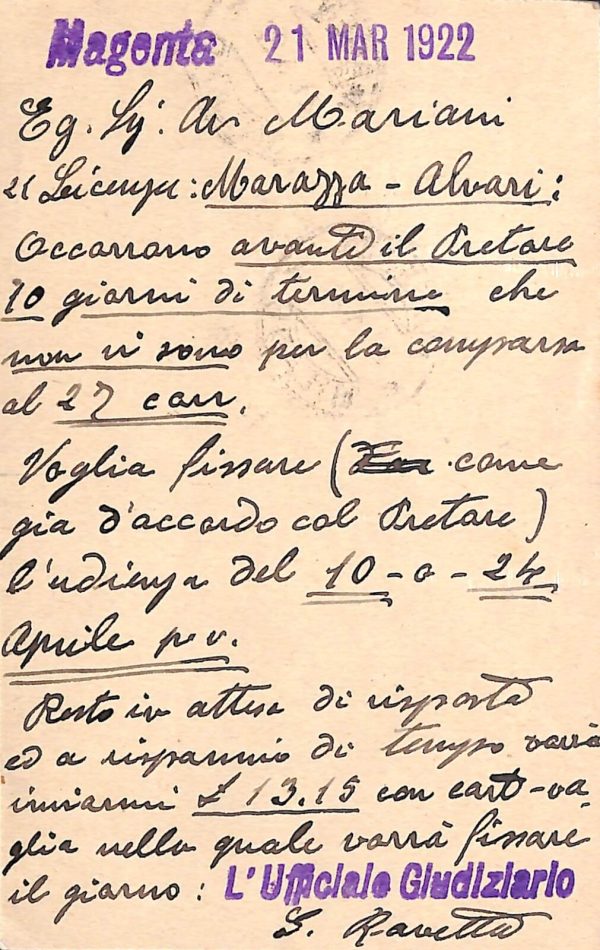 Magenta 21 MAR 1922
Eg. Sg. Av Mariani
Licenza: Marazza - Alvari:
Occorrono avanti il Pretore
10 giorni di termine che
non vi sono per la comparsa
al 27 corr.
Voglia fissare ( come
già d'accordo col Pretore)
l'udienza del 10 - o - 24
Aprile p.v.
Resto in attesa di risposta
ed a risparmio di tempo vorrà
inviarmi £ 13.15 con cart-va-
glia nella quale vorrà fissare
il giorno: L'Ufficiale Giudiziario
Ravetta